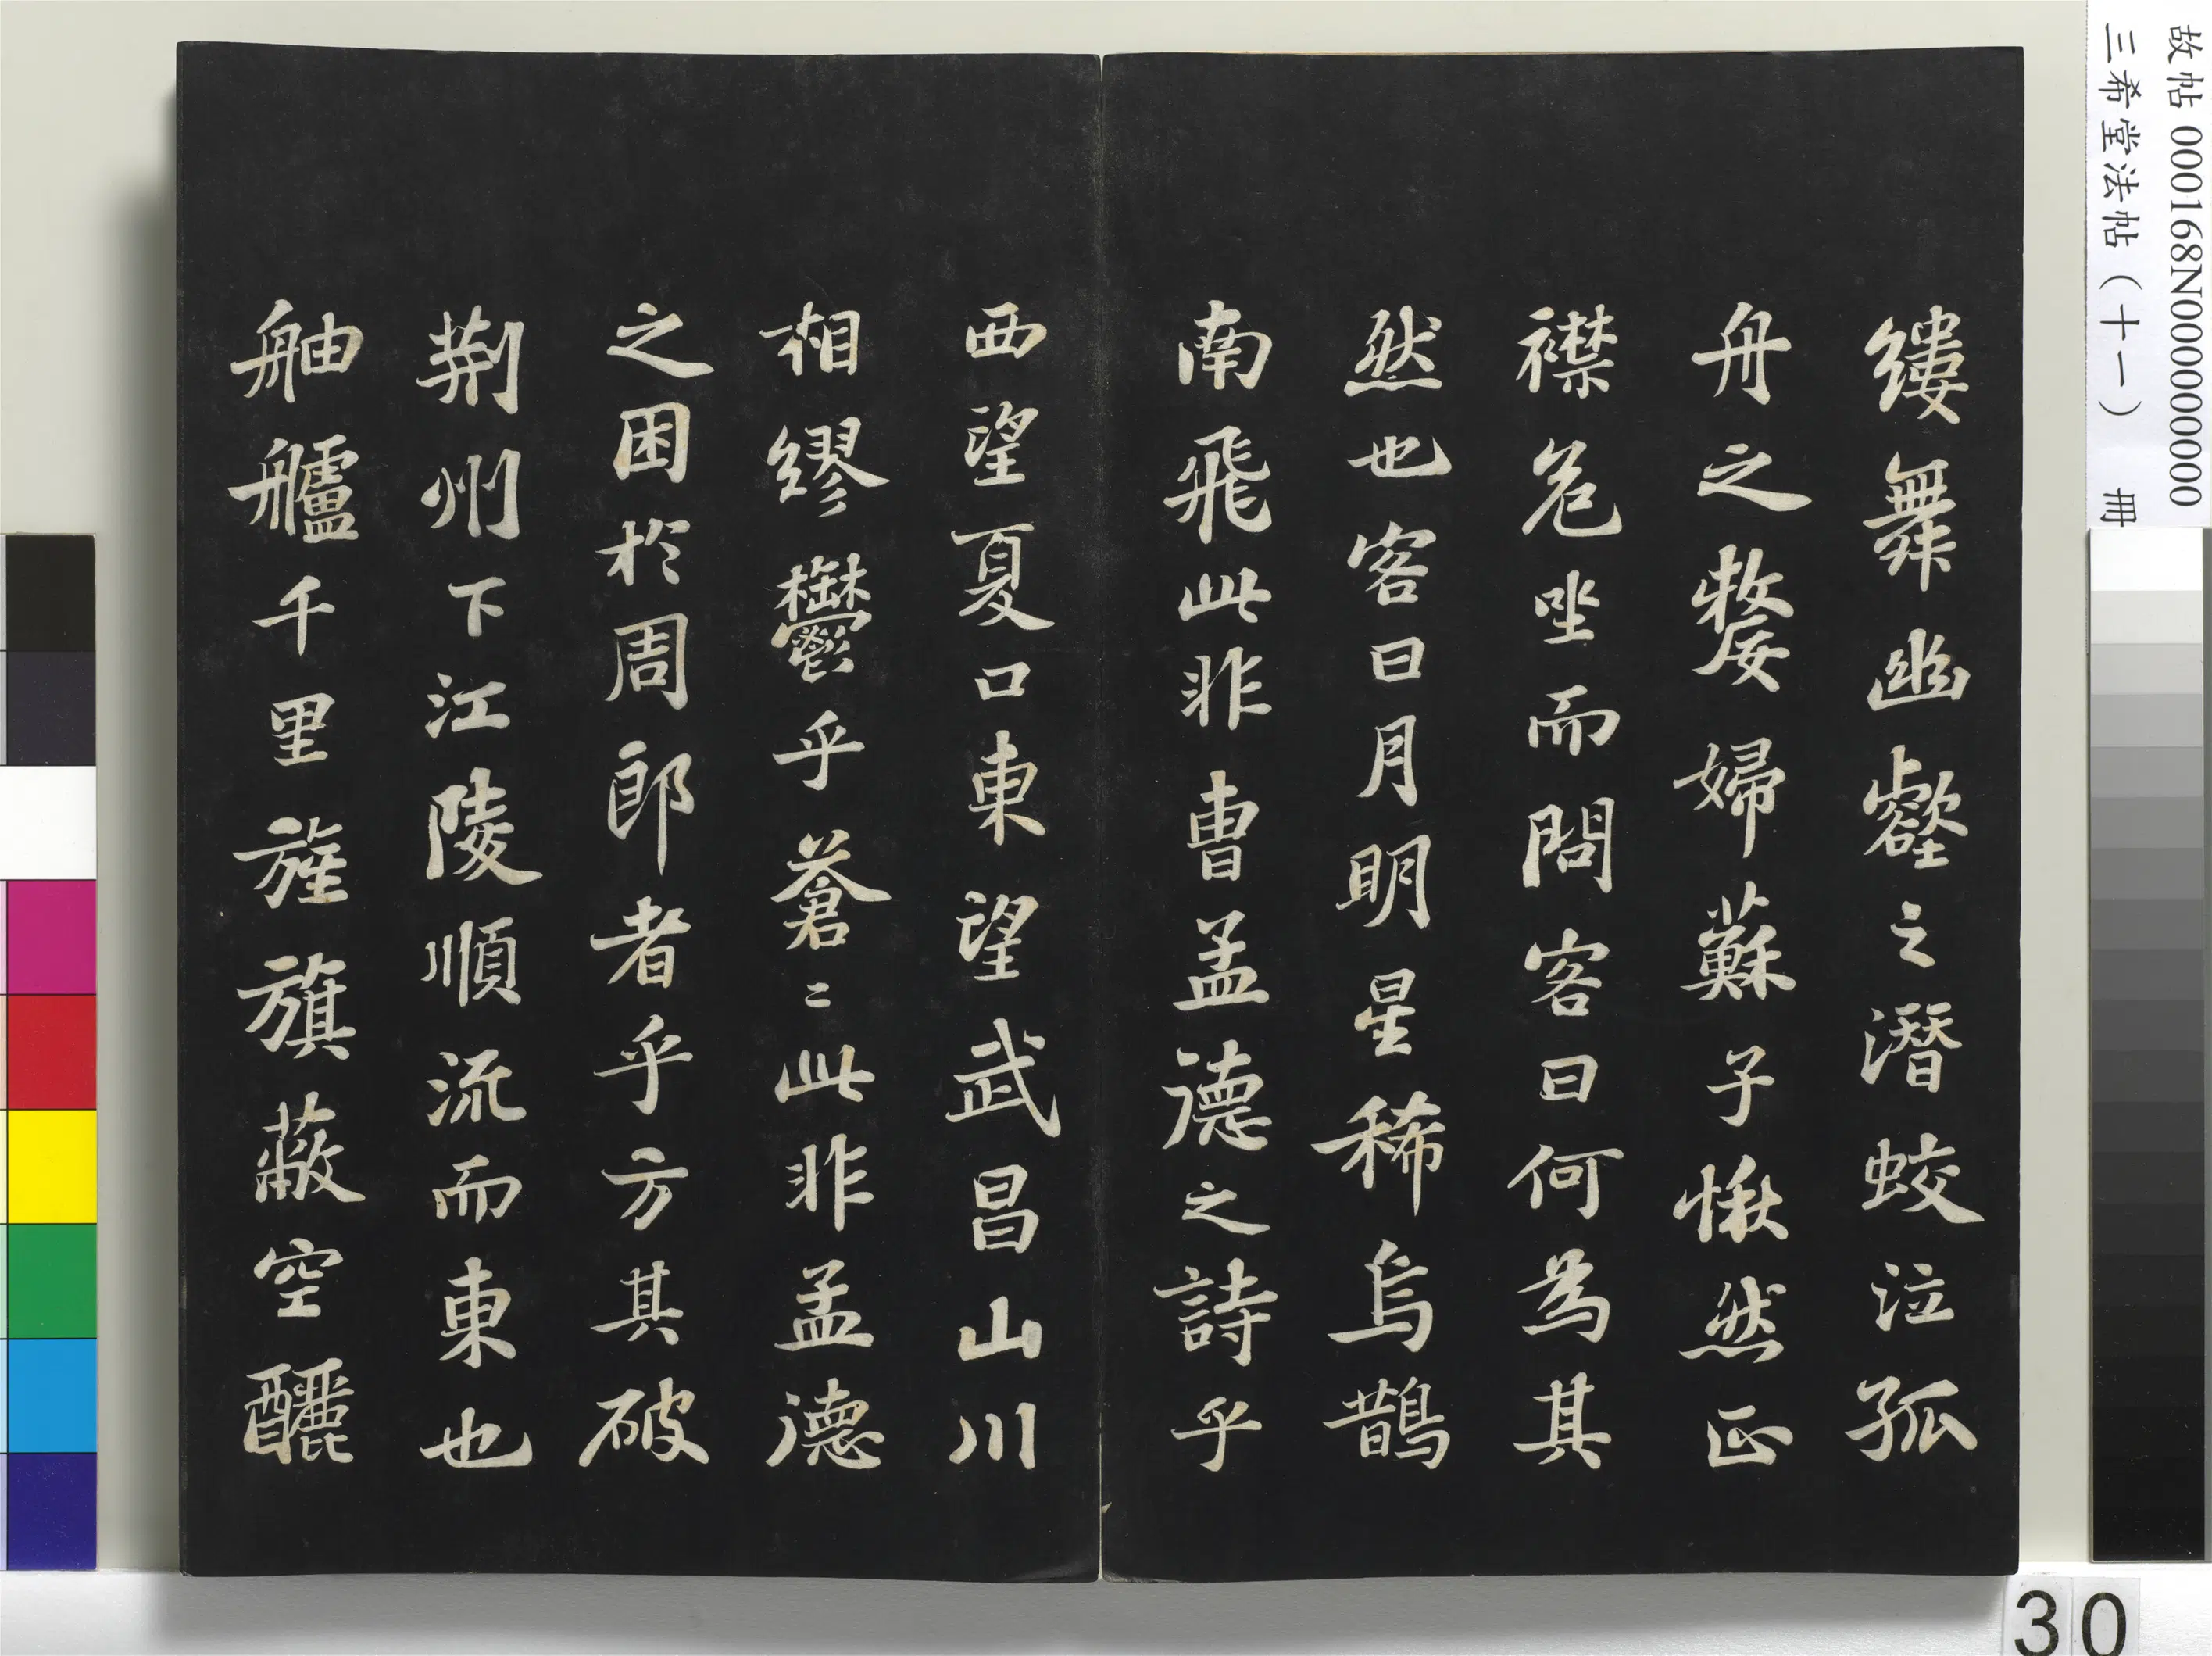 故帖 000168N000000000
三希堂法帖（十一） 冊
縷舞幽壑之潛蛟泣孤
舟之嫠婦蘇子愀然正
襟危坐而問客曰何為其
然也客曰月明星稀烏鵲
南飛此非曹孟德之詩乎
西望夏口東望武昌山川
相繆鬱乎蒼〻此非孟德
之困於周郎者乎方其破
荆州下江陵順流而東也
舳艫千里旌旗蔽空釃
30